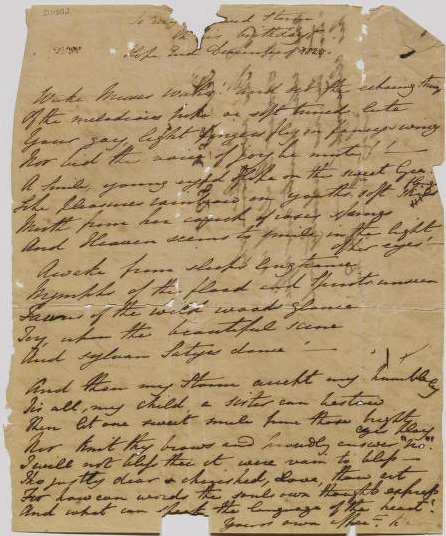 To
Stormie
On his birthday
Hope End December 1820.
Wake Muses Wake! the echoing string
Of the melodious or soft tuned lute
Your gay, light fingers fly on Fancys wing
Nor bid the voice of joy be mute! —
A smile, young sylph of on the sweet
Like Pleasures rainbow on you the soft
Mirth from her couch of roses springs
And Heaven seems to smile in the light
of her eyes!
Awake from sleeps long trance
Nymphs of the flood and Spirits unseen
Fawns of the wild wood glance
Joy, when the beautiful scene
And sylvan Satyrs dance! —
And then my Storm accept my humble lay
Tis all, my child, a sister can bestow
Then let one sweet smile from those bright
eyes play
Nor knit thy brows and proudly answer "No".
I will not bless thee it were vain to bless
Tho justly dear & cherished, Love, thou art
For how can words the souls own thought express
And what can speak the language of the heart!
Yours own affec